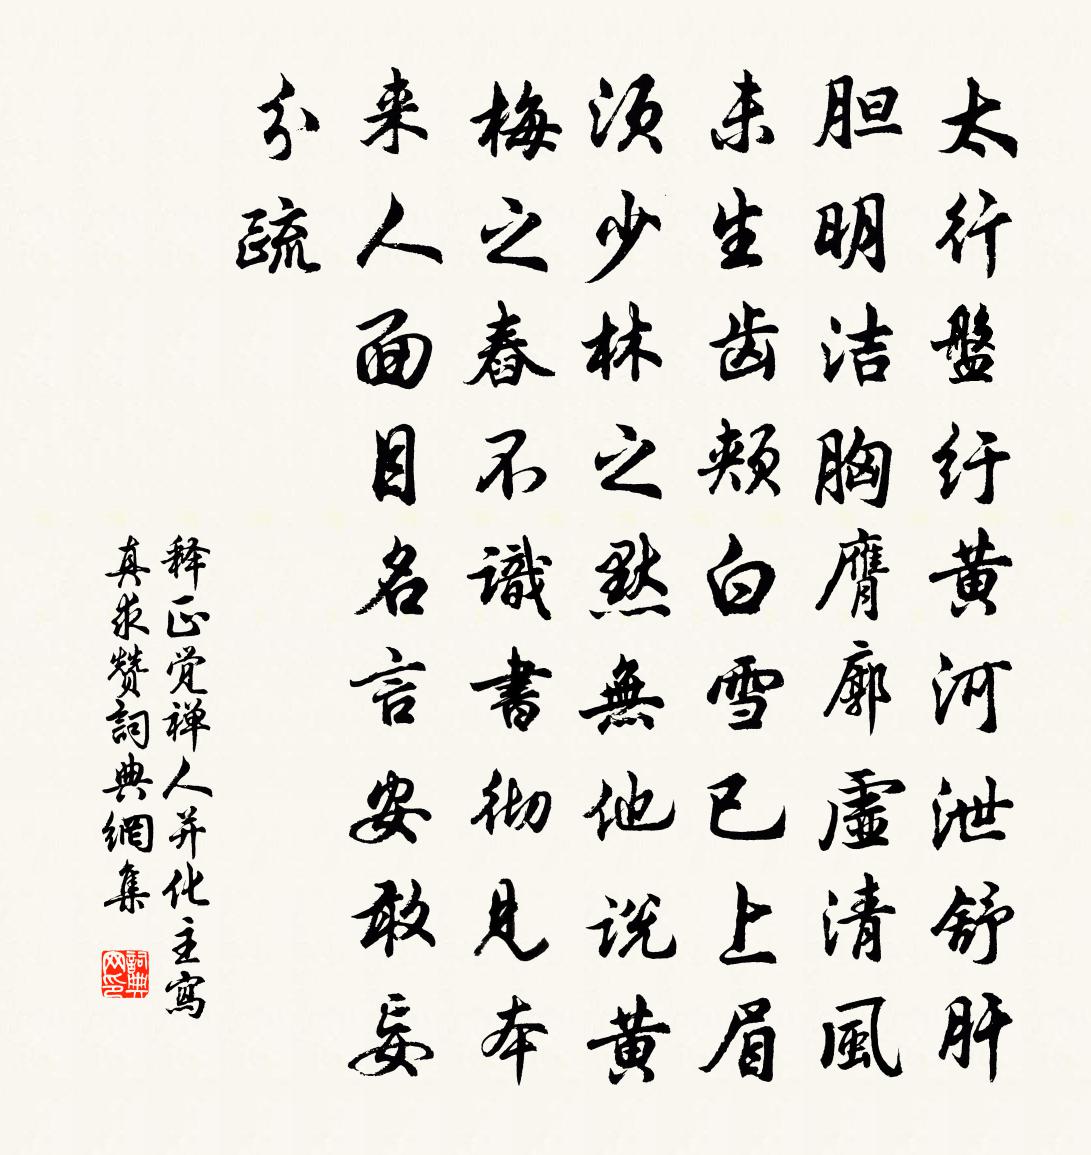 太行盤纡黄河泄舒肝
胆明洁胸膺廓虛清風
未生齿颊白雪已上眉
须少林之黙無他说黄
梅之舂不識書彻見本
来人面目名言安敢妄
分疏
释正觉禅人并化主寫
真求赞詞典網集
詞典网印